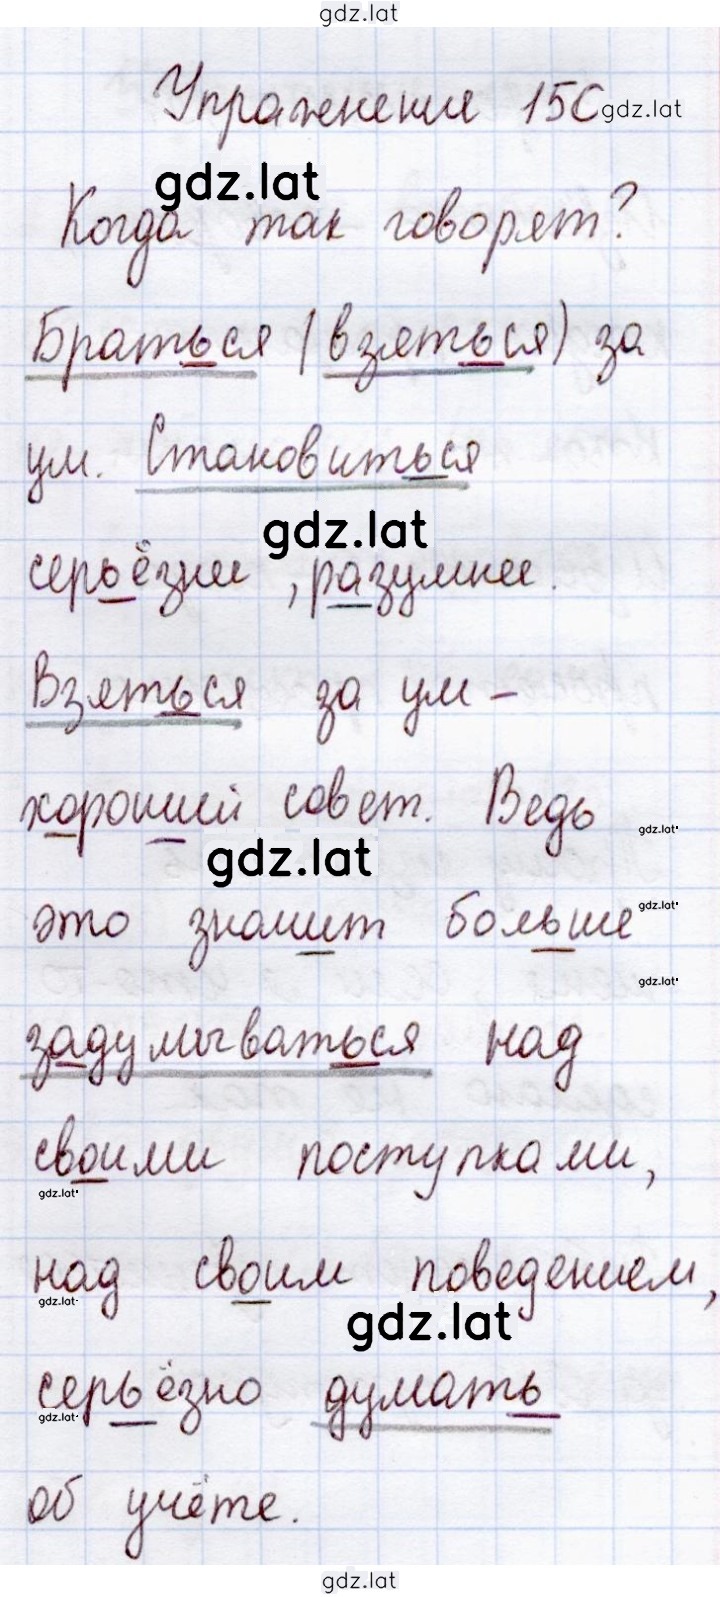 gdz.lat
Упражнение 150
gdz.lat
gdz.lat
Когда так говорят?
Браться (взяться) за
ум. Становиться
gdz.lat
серьёзнее, разумнее.
Взяться за ум –
хороший совет. Ведь
gdz.lat
gdz.lat
это значит больше
gdz.lat
gdz.lat
задумываться над
своими поступками,
gdz.lat
над своим поведением,
gdz.lat
gdz.lat
серьёзно думать
gdz.lat
об учёте.
gdz.lat